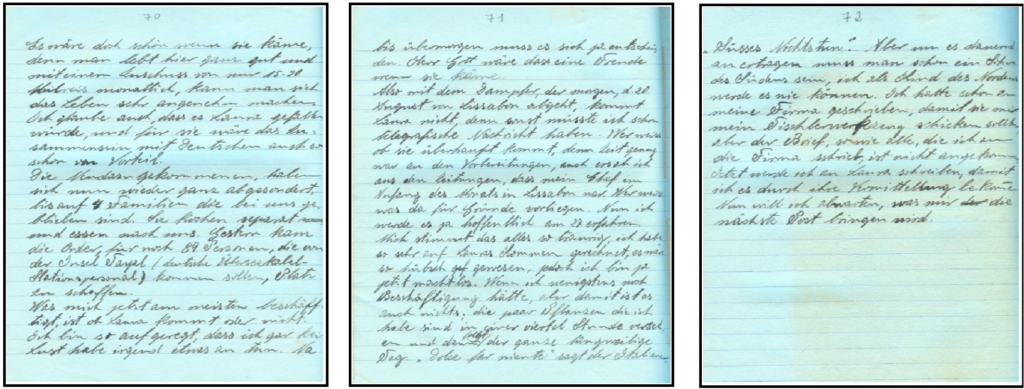 70
Es wäre doch schön wenn sie käme,
denn man lebt hier ganz gut und
mit einem Zuschuss von nur 15-20
Milreis monatlich, kann man sich
das Leben sehr angenehm machen
Ich glaube auch, dass es Laura gefallen
würde, und für sie wäre das Zu-
sammensein mit Deutschen auch
schon von Vorteil.
Die gekommenen, haben
sich nun wieder ganz abgesondert,
bis auf 4 Familien die bei uns ge-
blieben sind. Sie kochen separat
und essen nach uns. Gestern kam
die Order, für noch 59 Personen, die von
der Insel Fayal (deutsche Überseekabel-
Stationspersonal) kommen sollen, Platz
zu schaffen.
Was mich jetzt am meisten beschäf-
tigt, ist ob Laura kommt oder nicht.
Ich bin so aufgeregt, dass ich gar keine
Lust habe irgend etwas zu tun. Na
71
bis übermorgen muss es sich ja entschei-
den. Herr Gott wäre das eine Freude
wenn sie käme.
Also mit dem Dampfer, der morgen, d. 20
August von Lissabon abgeht, kommt
Laura nicht, denn sonst müsste ich schon
telegrafische Nachricht haben. Wer weiss
ob sie überhaupt kommt, denn Zeit genug
war zu den Vorbereitungen, auch ersah ich
aus den Zeitungen, dass mein Chef am
Anfang des Monats in Lissabon war. Wer weiss
was da für Gründe vorliegen. Nun ich
werde es ja hoffentlich am 27 erfahren.
Mich stimmt das alles so traurig, ich habe
so sehr auf Lauras Kommen gerechnet, es wäre
so hübsch gewesen, jedoch ich bin ja
jetzt machtlos. Wenn ich wenigstens noch
Beschäftigung hätte, aber damit ist es
auch nichts; die paar Pflanzen die ich
habe sind in einer viertel Stunde
und der ganze langweilige
Tag. „Dolce far niente" sagt der Italiener
72
„Süsses Nichtstun". Aber um es dauernd
zu ertragen muss man schon ein Sohn
des Südens sein, ich als Kind des Nordens
werde es nie können. Ich hatte schon an
meine Firma geschrieben, damit sie mir
mein Tischlerwerkzeug schicken sollte
aber der Brief, sowie alle, die ich an
die Firma schrieb, ist nicht angekommen
Jetzt werde ich an Laura schreiben, damit
ich es durch ihre Vermittlung bekomme
Nun will ich abwarten, was mir die
nächste Post bringen wird.